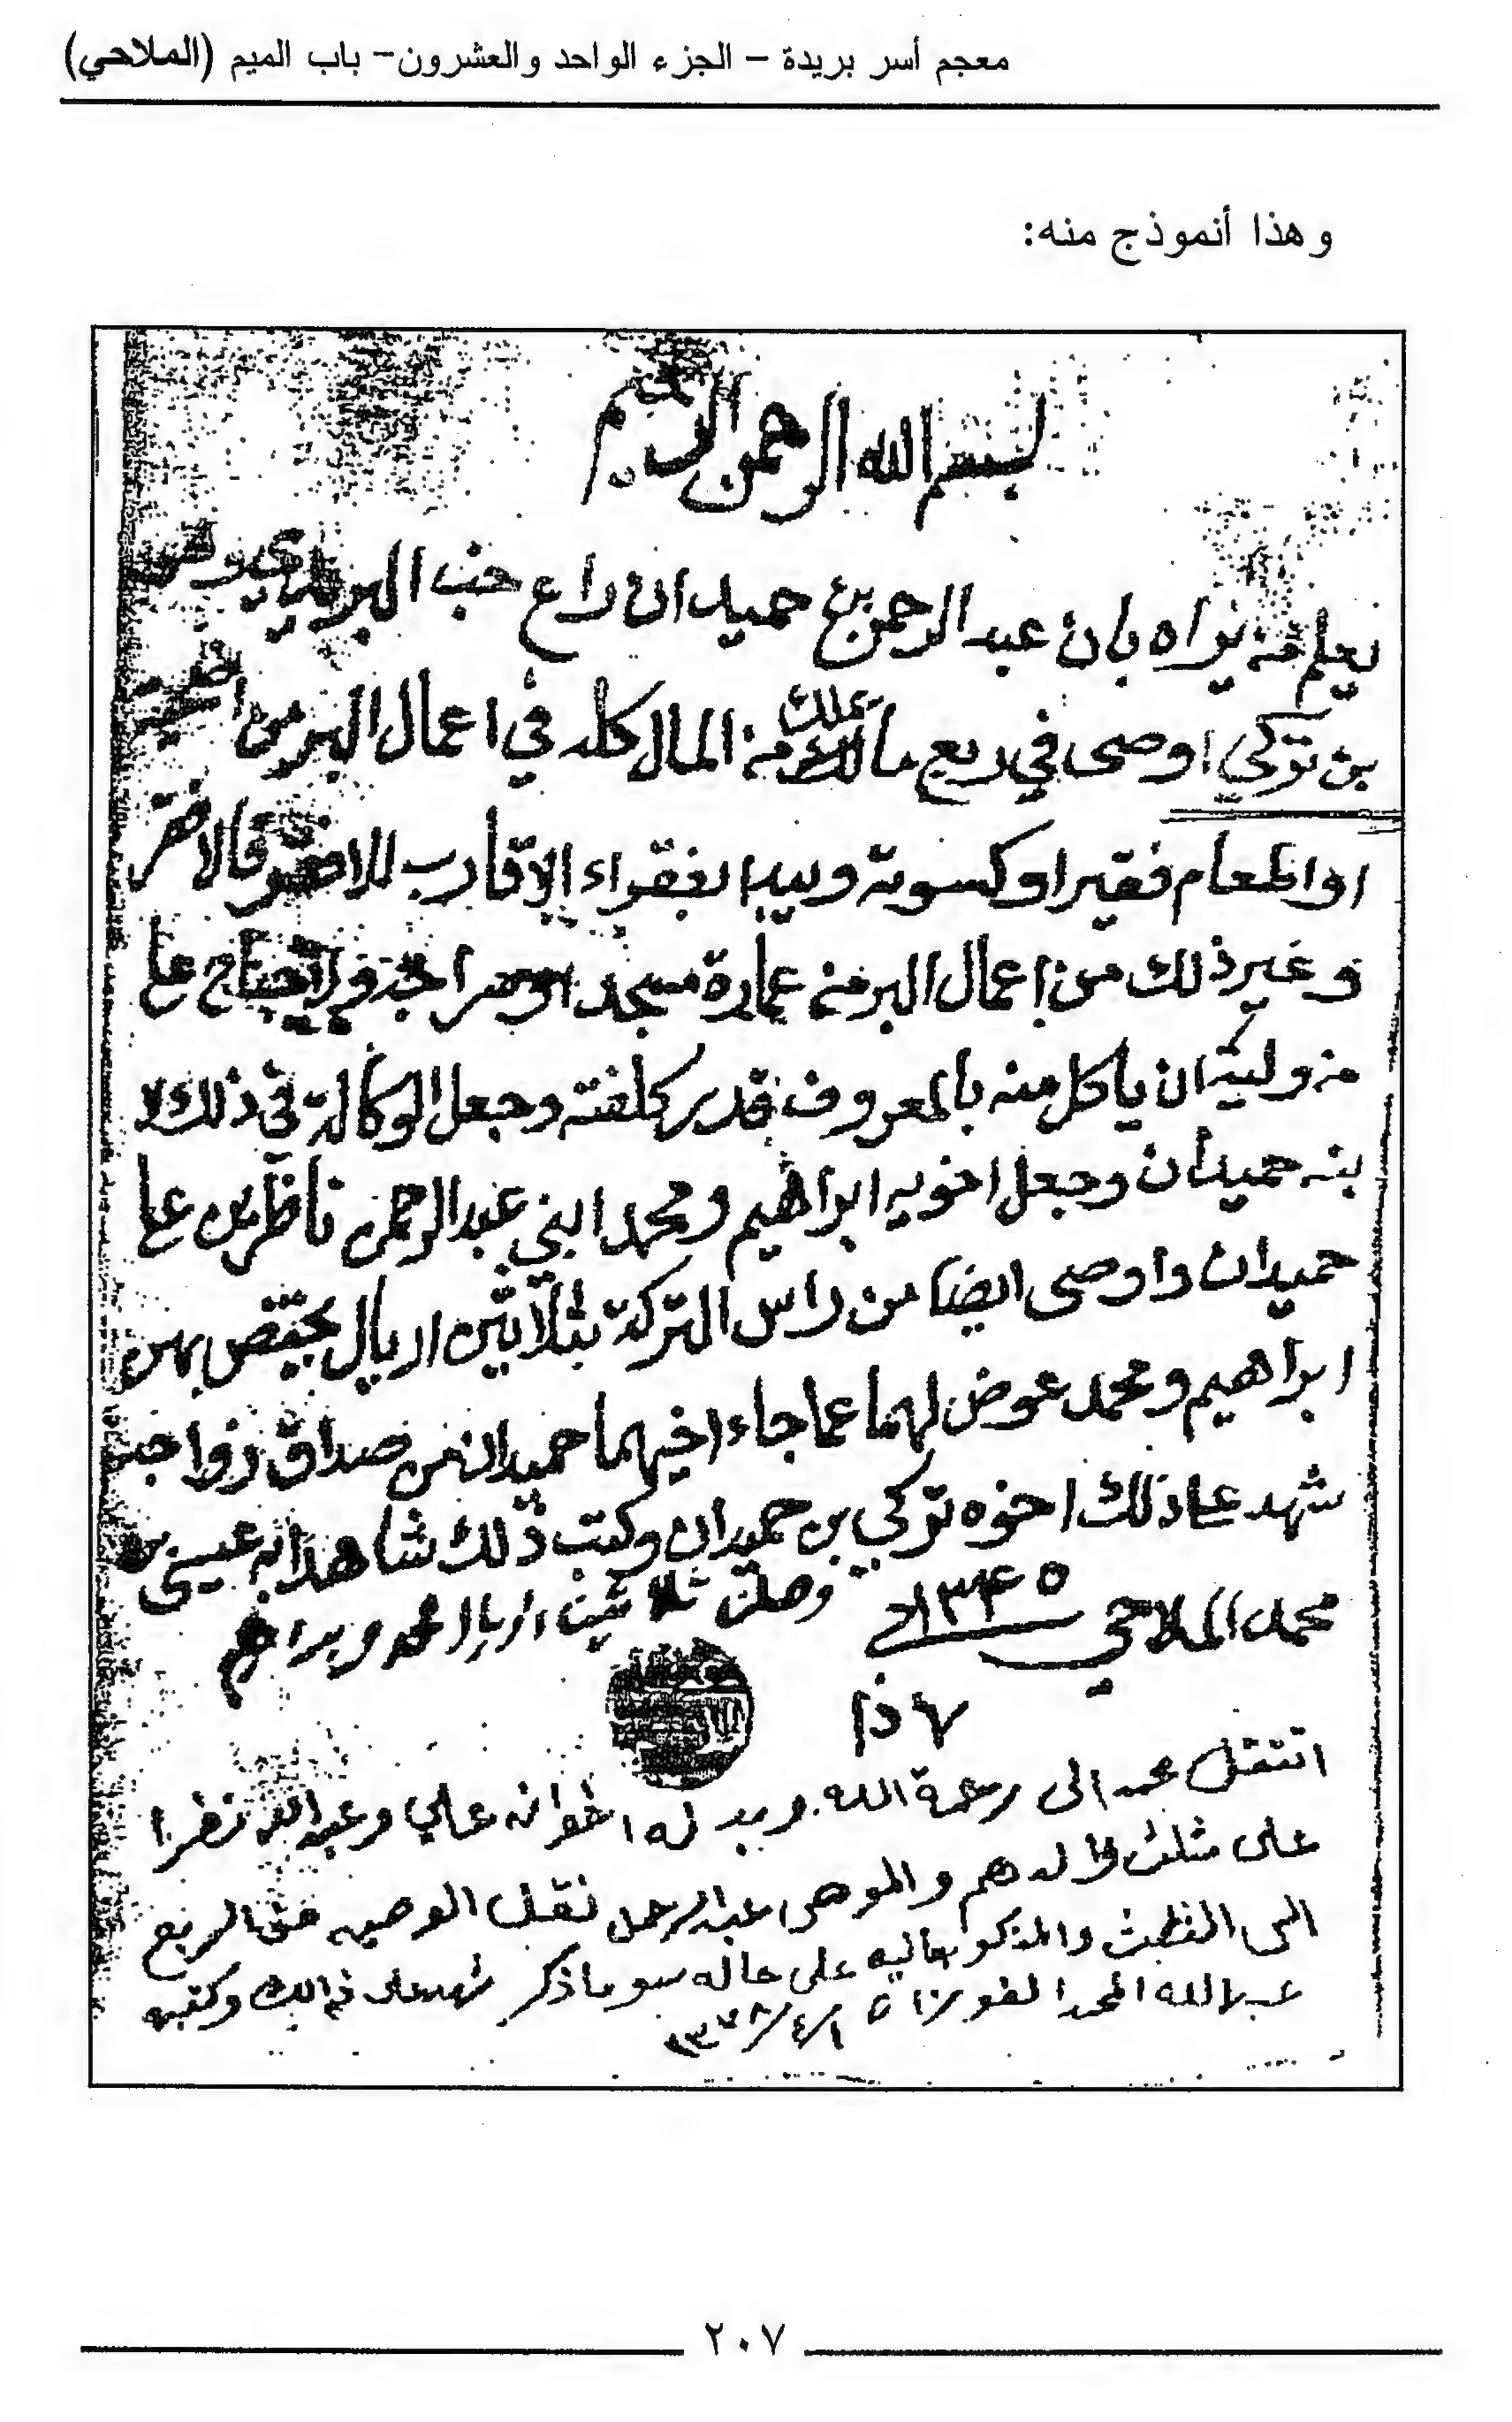 معجم أسر بريدة – الجزء الواحد والعشرون – باب الميم (الملاحي)
وهذا أنموذج منه:
بسم الله الرحمن الرحيم
يعلم من يراه بان عبد الرحمن بن حميدان راع خب البريدي وهو
بن تركي اوصى في ربع ماله يملك من المال كله في اعمال البر من اضحية
او اطعام فقير او كسوته ويبدا بفقراء الاقارب للافقر فالافقر
وغير ذلك من اعمال البر من عمارة مسجد وسراجه ولا جناح على
من وليه ان ياكل منه بالمعروف قدر كلفته وجعل الوكالة في ذلك لا
بنه حميدان وجعل اخويه ابراهيم ومحمد ابني عبد الرحمن ناظرين على
حميدان واوصى ايضا من راس التركة بثلاثين اريال يختص بهن
ابراهيم ومحمد عوض لهما عما جاء اخيهما حميدان من صداق زواجه
شهد على ذلك اخوه تركي بن حميدان وكتب ذلك شاهدا به عيسى بن
محمد الملاحي ١٣٤٥ وصلن ثلاثين اريال محمد وبراهيم
٧ ذا
انتقل محمد الى رحمة الله وبدله اخوانه علي وعبد الله نظرا
على مثلث والدهم والموصي عبد الرحمن نقل الوصيه من الربع
الى الثلث والمذكور على حاله سوا ما ذكر شهد على ذالك وكتبه
عبد الله المحمد